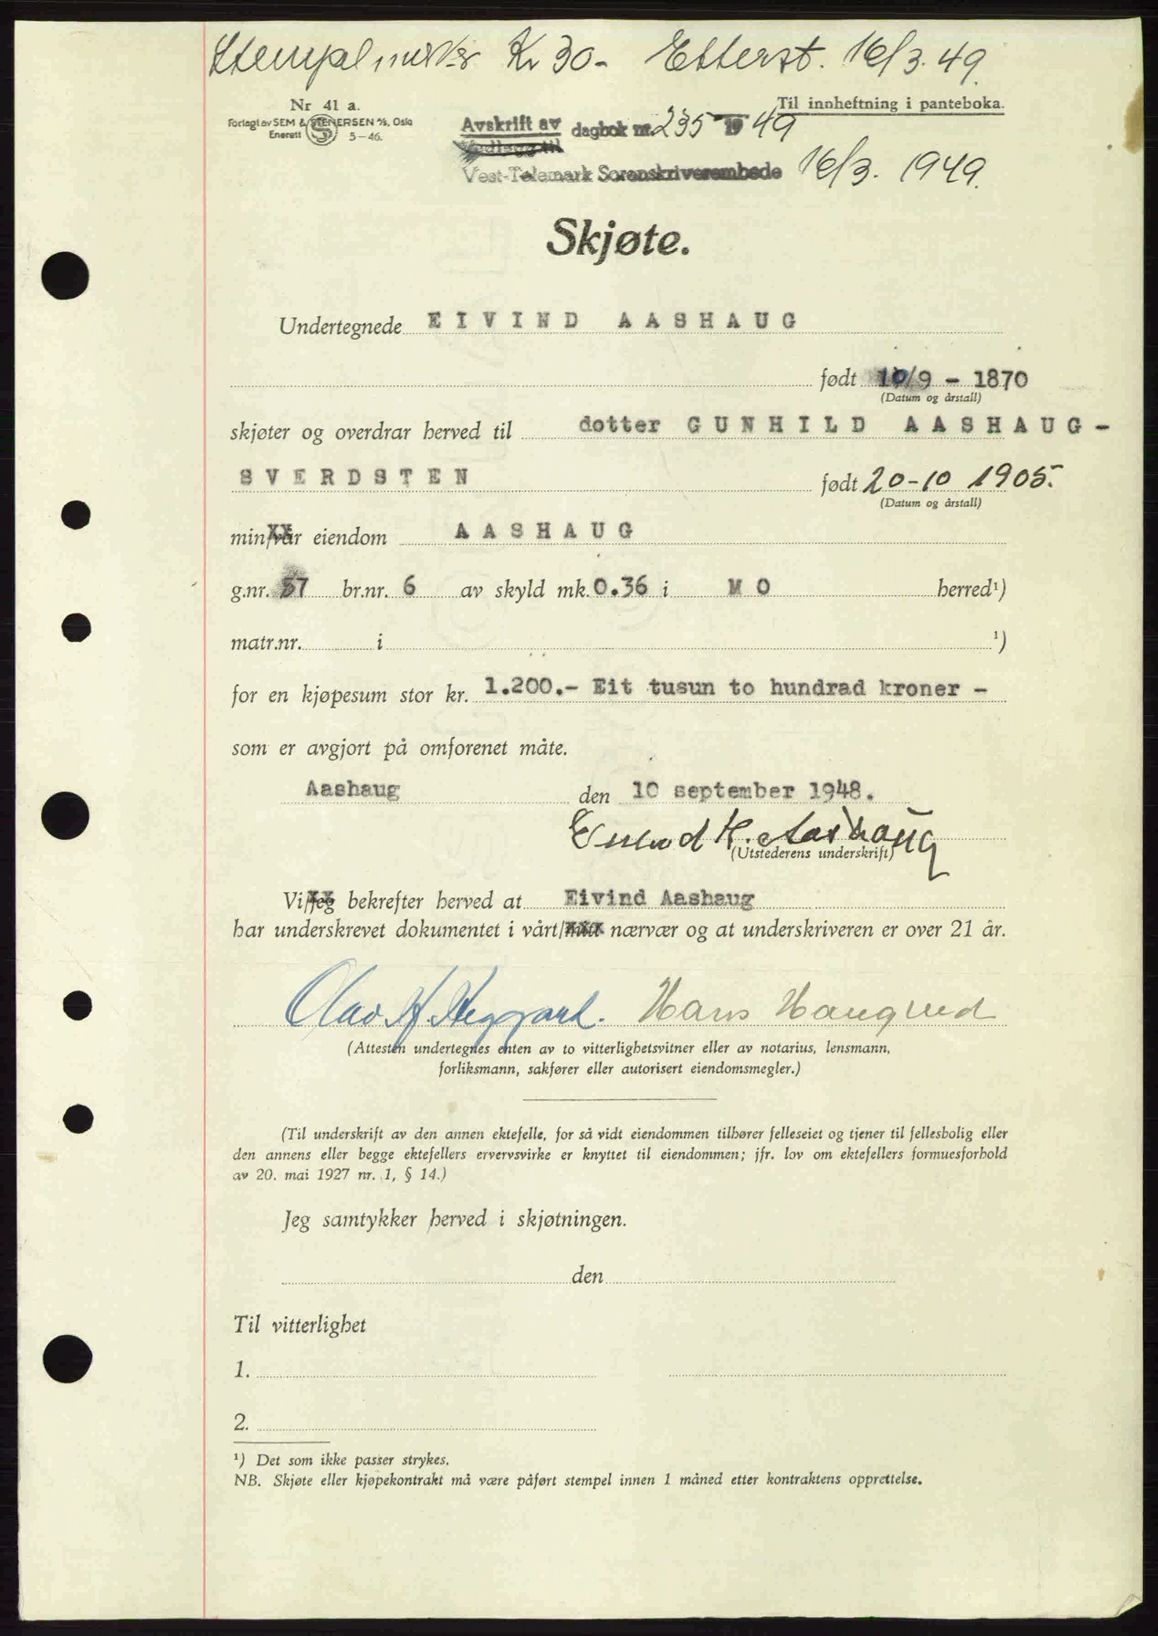 Stempelmerker Kr 30- Etterst. 16/3.49.
Nr 41 a.
Til innheftning i panteboka.
Forlagt av SEM & STENERSEN A/S, Oslo
Enerett S 5-46.
Avskrift av dagbok nr. 235 1949
Vedlegg til
Vest-Telemark Sorenskriverembede 16/3. 1949.
Skjøte.
Undertegnede EIVIND AASHAUG
født 10/9 - 1870
(Datum og årstall)
skjøter og overdrar herved til dotter GUNHILD AASHAUG-
SVERDSTEN født 20-10 1905.
(Datum og årstall)
min/vår eiendom AASHAUG
g.nr. 57 br.nr. 6 av skyld mk. 0.36 i MO herred¹)
matr.nr. i ¹)
for en kjøpesum stor kr. 1.200.- Eit tusun to hundrad kroner -
som er avgjort på omforenet måte.
Aashaug den 10 september 1948.
Eivind H. Aashaug
(Utstederens underskrift)
Vi/jeg bekrefter herved at Eivind Aashaug
har underskrevet dokumentet i vårt/mitt nærvær og at underskriveren er over 21 år.
Olav H. Heggard. Hans Haugrud
(Attesten undertegnes enten av to vitterlighetsvitner eller av notarius, lensmann,
forliksmann, sakfører eller autorisert eiendomsmegler.)
(Til underskrift av den annen ektefelle, for så vidt eiendommen tilhører felleseiet og tjener til fellesbolig eller
den annens eller begge ektefellers ervervsvirke er knyttet til eiendommen; jfr. lov om ektefellers formuesforhold
av 20. mai 1927 nr. 1, § 14.)
Jeg samtykker herved i skjøtningen.
den
Til vitterlighet
1.
2.
¹) Det som ikke passer strykes.
NB. Skjøte eller kjøpekontrakt må være påført stempel innen 1 måned etter kontraktens opprettelse.